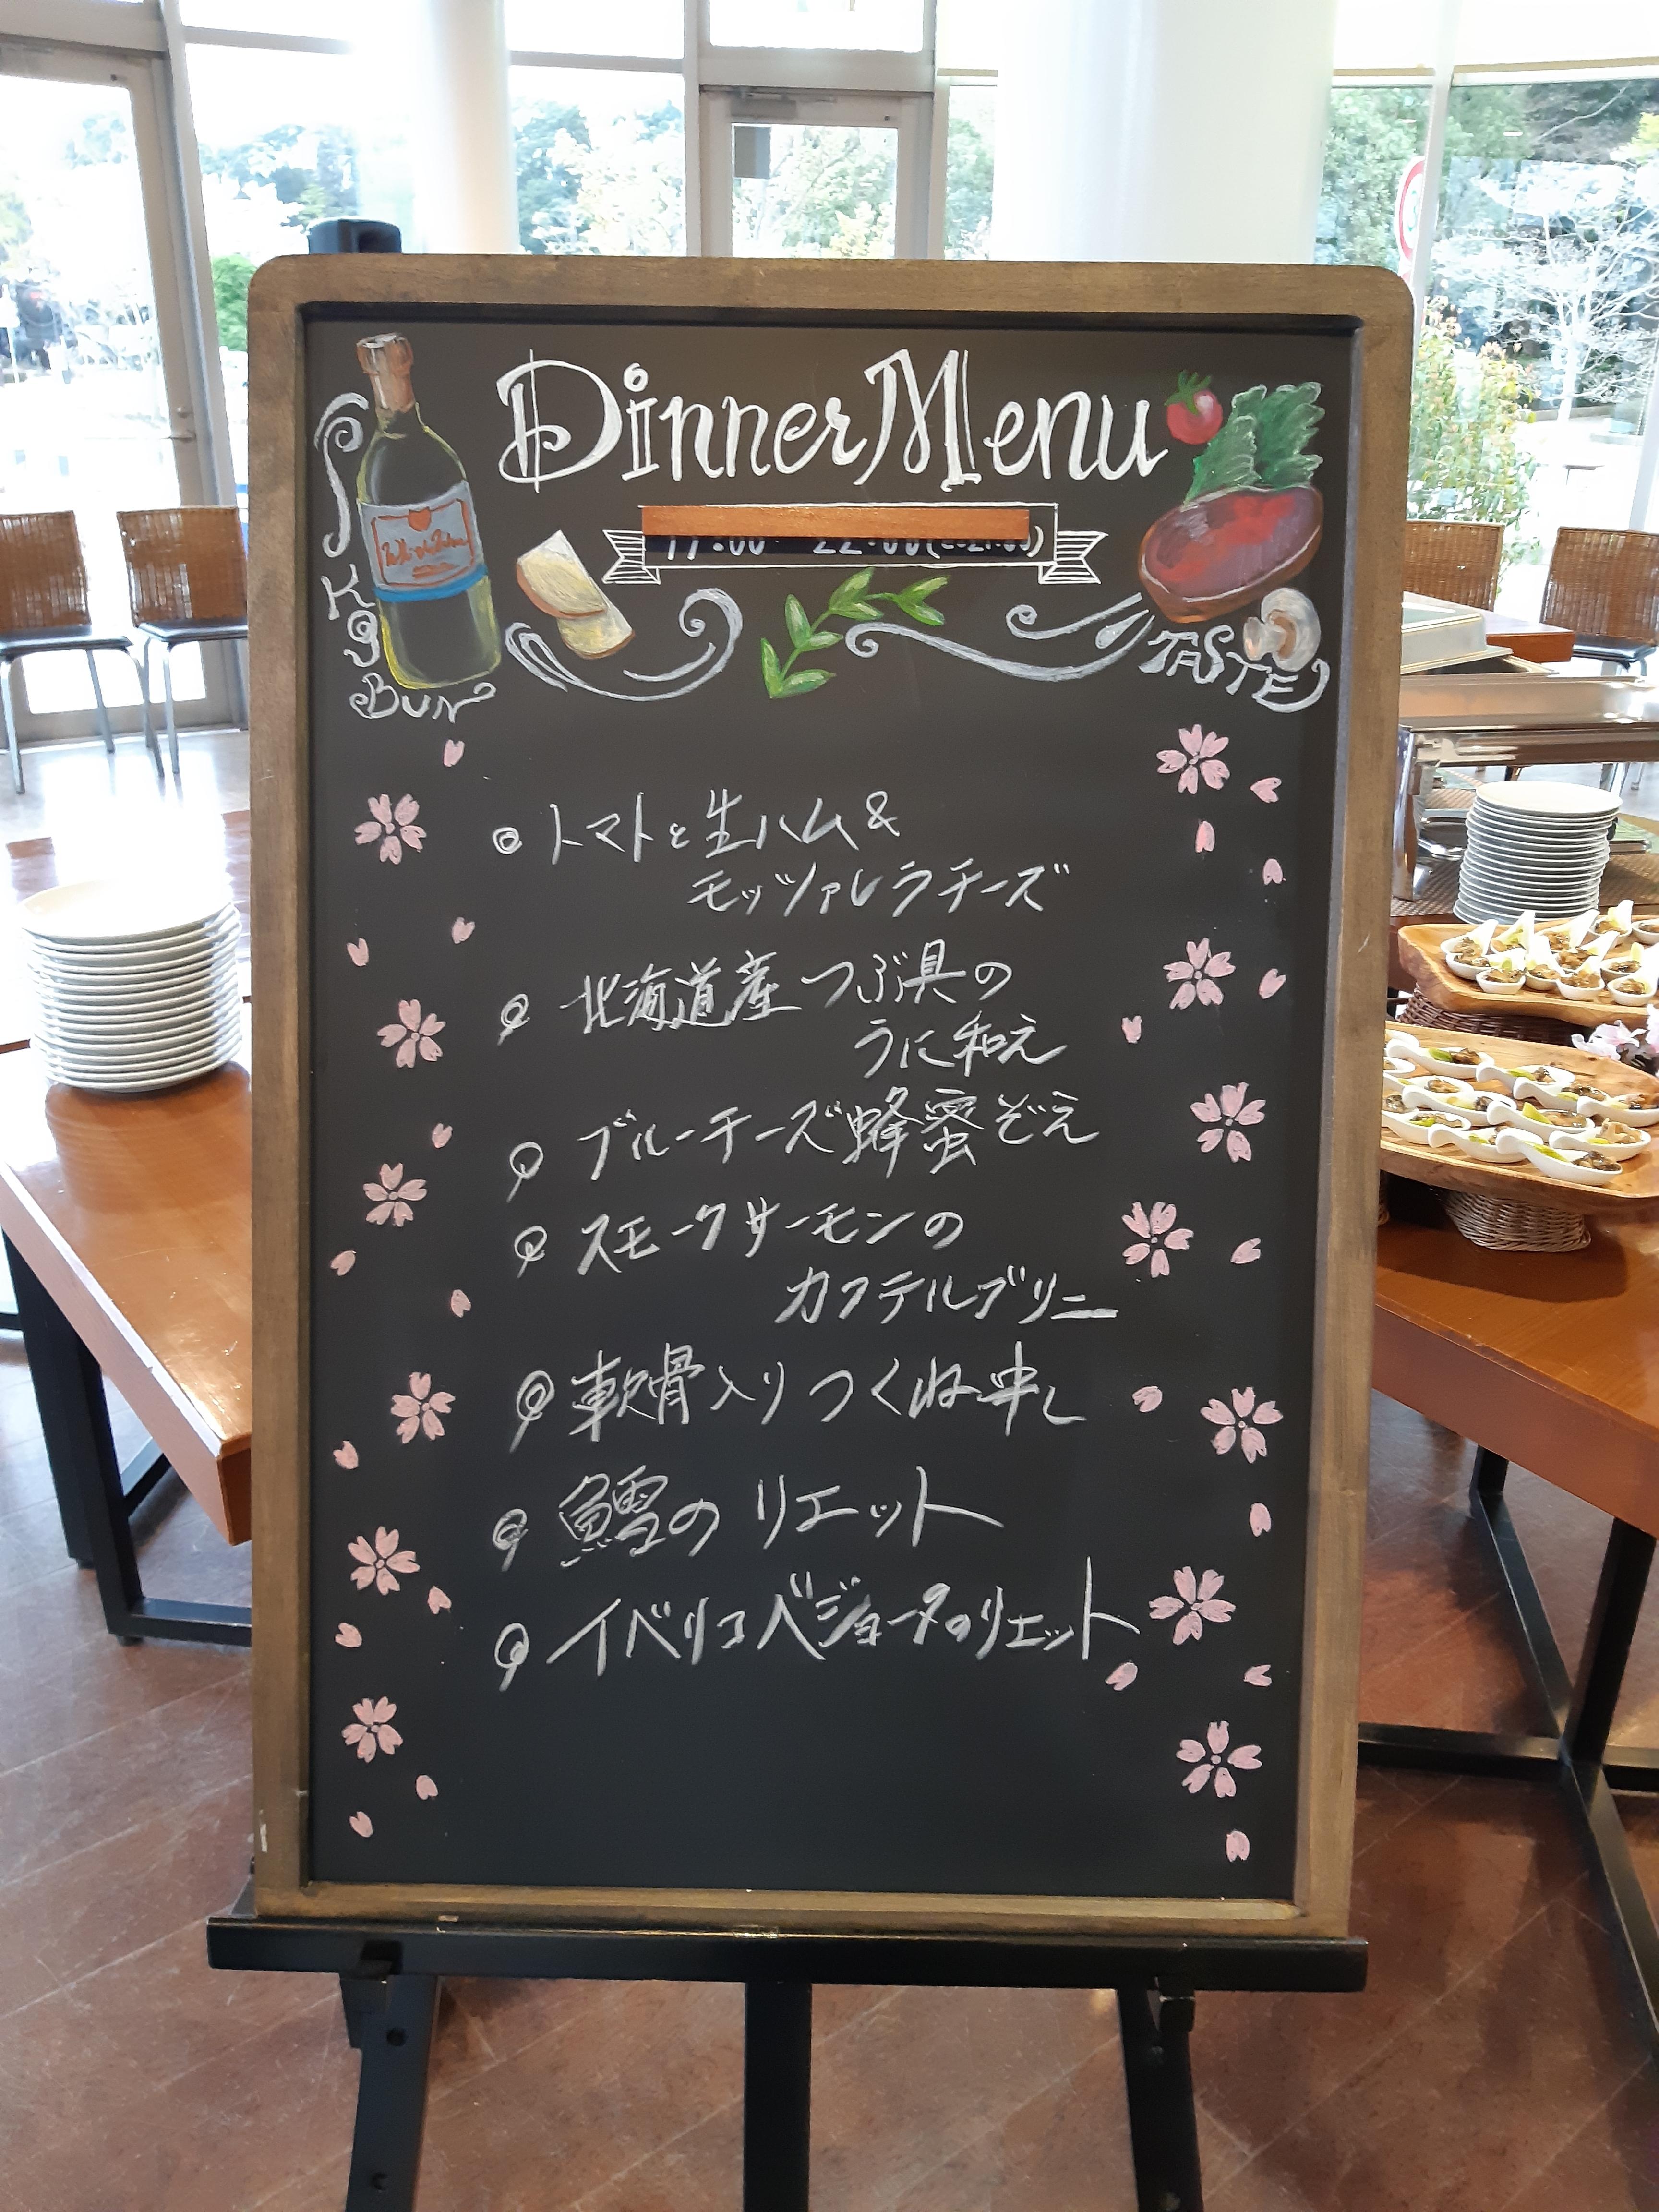 Dinner Menu
TASTE
トマトと生ハム&
モッツァレラチーズ
北海道産つぶ貝の
うに和え
ブルーチーズ蜂蜜ぞえ
スモークサーモンの
カクテルブリニー
軟骨入りつくね串し
鱈のリエット
イベリコベジョータのリエット